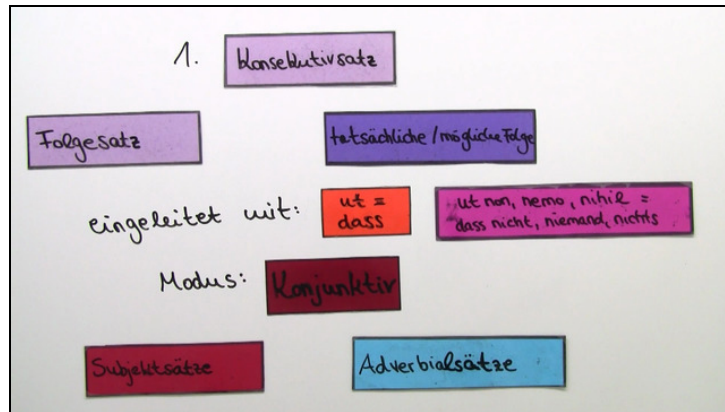 1. Konsekutivsatz
Folgesatz
tatsächliche/mögliche Folge
eingeleitet mit:
ut =
dass
ut non, nemo, nihil =
dass nicht, niemand, nichts
Modus: Konjunktiv
Subjektsätze
Adverbialsätze